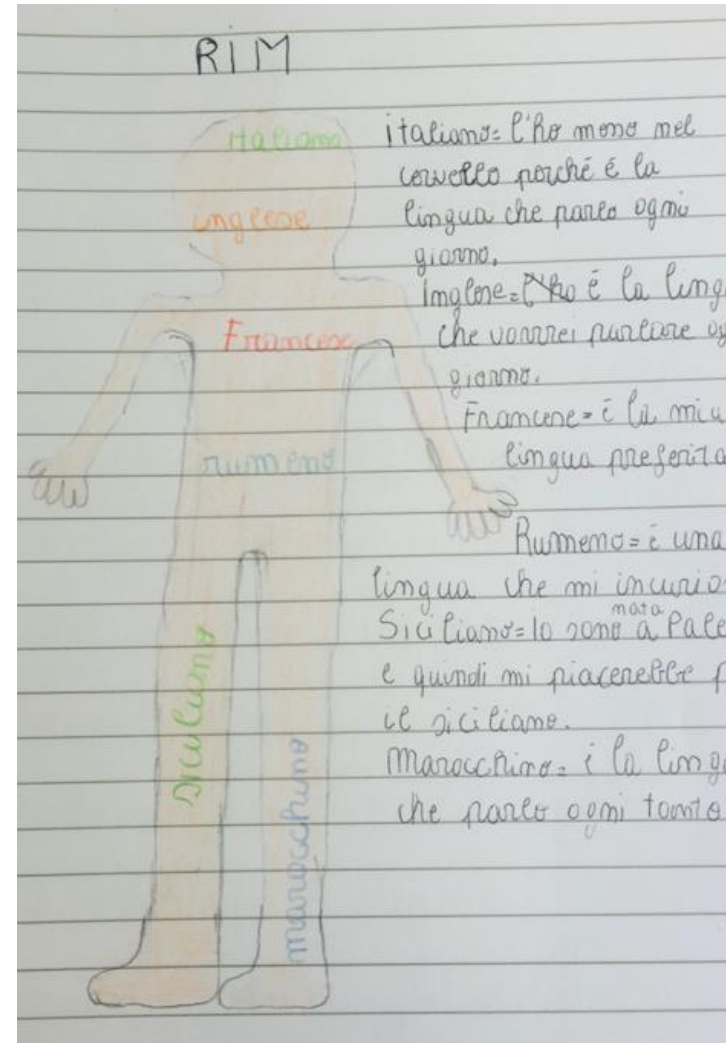 RIM
italiano
inglese
Francese
rumeno
siciliano
marocchino
italiano= l'ho messo nel
cervello perché é la
lingua che parlo ogni
giorno.
Inglese= é la ling
che vorrei parlare og
giorno.
Francese= è la mia
lingua preferita
Rumeno= è una
lingua che mi incurio
Siciliano= Io sono nata a Pale
e quindi mi piacerebbe p
il siciliano.
Marocchino= è la ling
che parlo ogni tanto